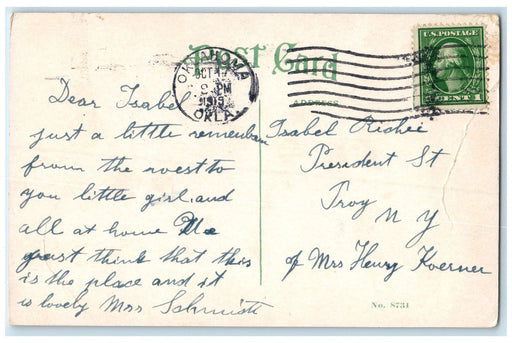 Post Card
OKLAHOMA
OCT 17
PM
1915
OKLA.
U.S. POSTAGE
CENT 1
ADDRESS
Dear Isabel
just a little remember
from the west to
you little girl and
all at home
just think that this
is the place and it
is lovely Mrs Schmidt
Isabel Richie
President St
Troy N Y
of Mrs Henry Koerner
No. 8731